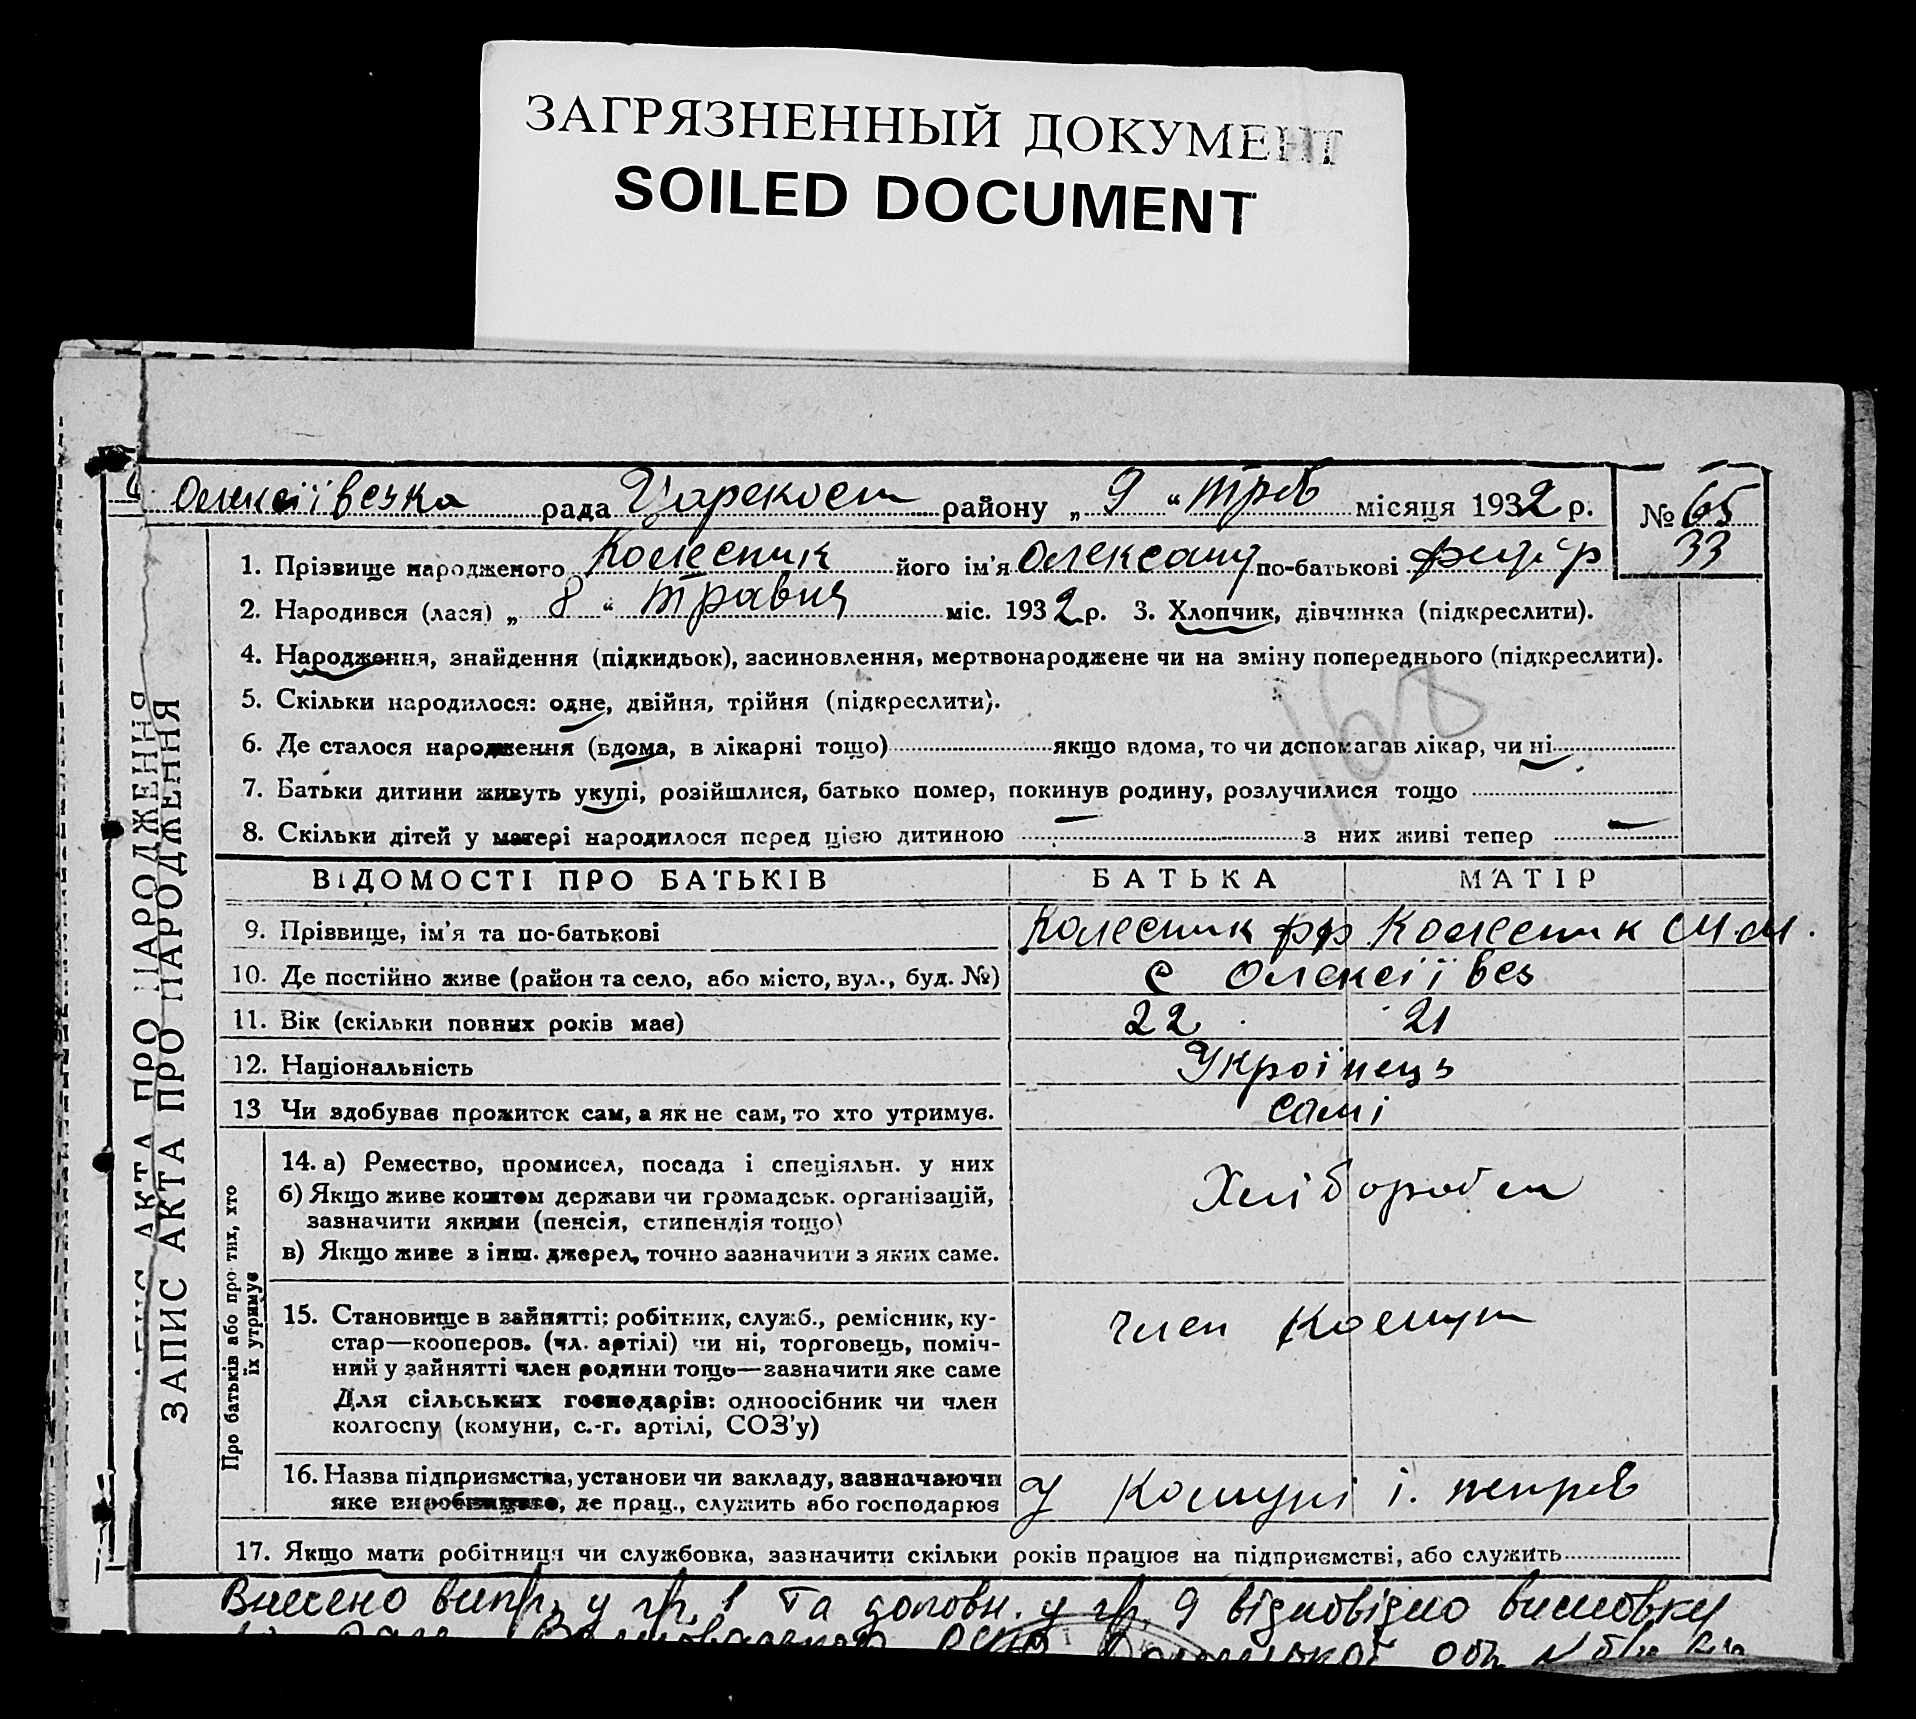 ЗАГРЯЗНЕННЫЙ ДОКУМЕНТ
SOILED DOCUMENT
Олексіївська рада району „ 9 “ місяця 1932 р. № 65
33
1. Прізвище народженого Колесник його ім'я Олександ по-батькові
2. Народився (лася) „ 8 “ Травня міс. 1932 р. 3. Хлопчик, дівчинка (підкреслити).
4. Народження, знайдення (підкидьок), засиновлення, мертвонароджене чи на зміну попереднього (підкреслити).
5. Скільки народилося: одне, двійня, трійня (підкреслити).
168
6. Де сталося народження (вдома, в лікарні тощо) якщо вдома, то чи допомагав лікар, чи ні
7. Батьки дитини живуть укупі, розійшлися, батько помер, покинув родину, розлучилися тощо
8. Скільки дітей у матері народилося перед цією дитиною — з них живі тепер —
ЗАПИС АКТА ПРО НАРОДЖЕННЯ
ЗАПИС АКТА ПРО НАРОДЖЕННЯ
ВІДОМОСТІ ПРО БАТЬКІВ БАТЬКА МАТІР
9. Прізвище, ім'я та по-батькові Колесник Колесник М.М.
10. Де постійно живе (район та село, або місто, вул., буд. №) с Олексіївсь
11. Вік (скільки повних років має) 22 21
12. Національність Українець
13 Чи здобуває прожиток сам, а як не сам, то хто утримує. самі
Про батьків або про тих, хто їх утримує
14. а) Ремество, промисел, посада і спеціяльн. у них
б) Якщо живе коштом держави чи громадськ. організацій,
зазначити якими (пенсія, стипендія тощо)
в) Якщо живе з інш. джерел, точно зазначити з яких саме.
Хлібороби
15. Становище в зайнятті: робітник, служб., ремісник, ку-
стар—кооперов. (чл. артілі) чи ні, торговець, поміч-
ний у зайнятті член родини тощо—зазначити яке саме
Для сільських господарів: одноосібник чи член
колгоспу (комуни, с.-г. артілі, СОЗ'у)
член Комун
16. Назва підприємства, установи чи вакладу, зазначаючи
яке виробництво, де прац., служить або господарює
У Комуні і.
17. Якщо мати робітниця чи службовка, зазначити скільки років працює на підприємстві, або служить
Внесено випр. у гр. 1 та доповн. у гр. 9 відповідно висновку